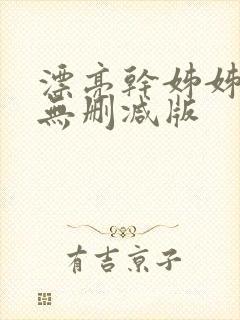 漂亮幹姊姊
無刪減版
有吉京子